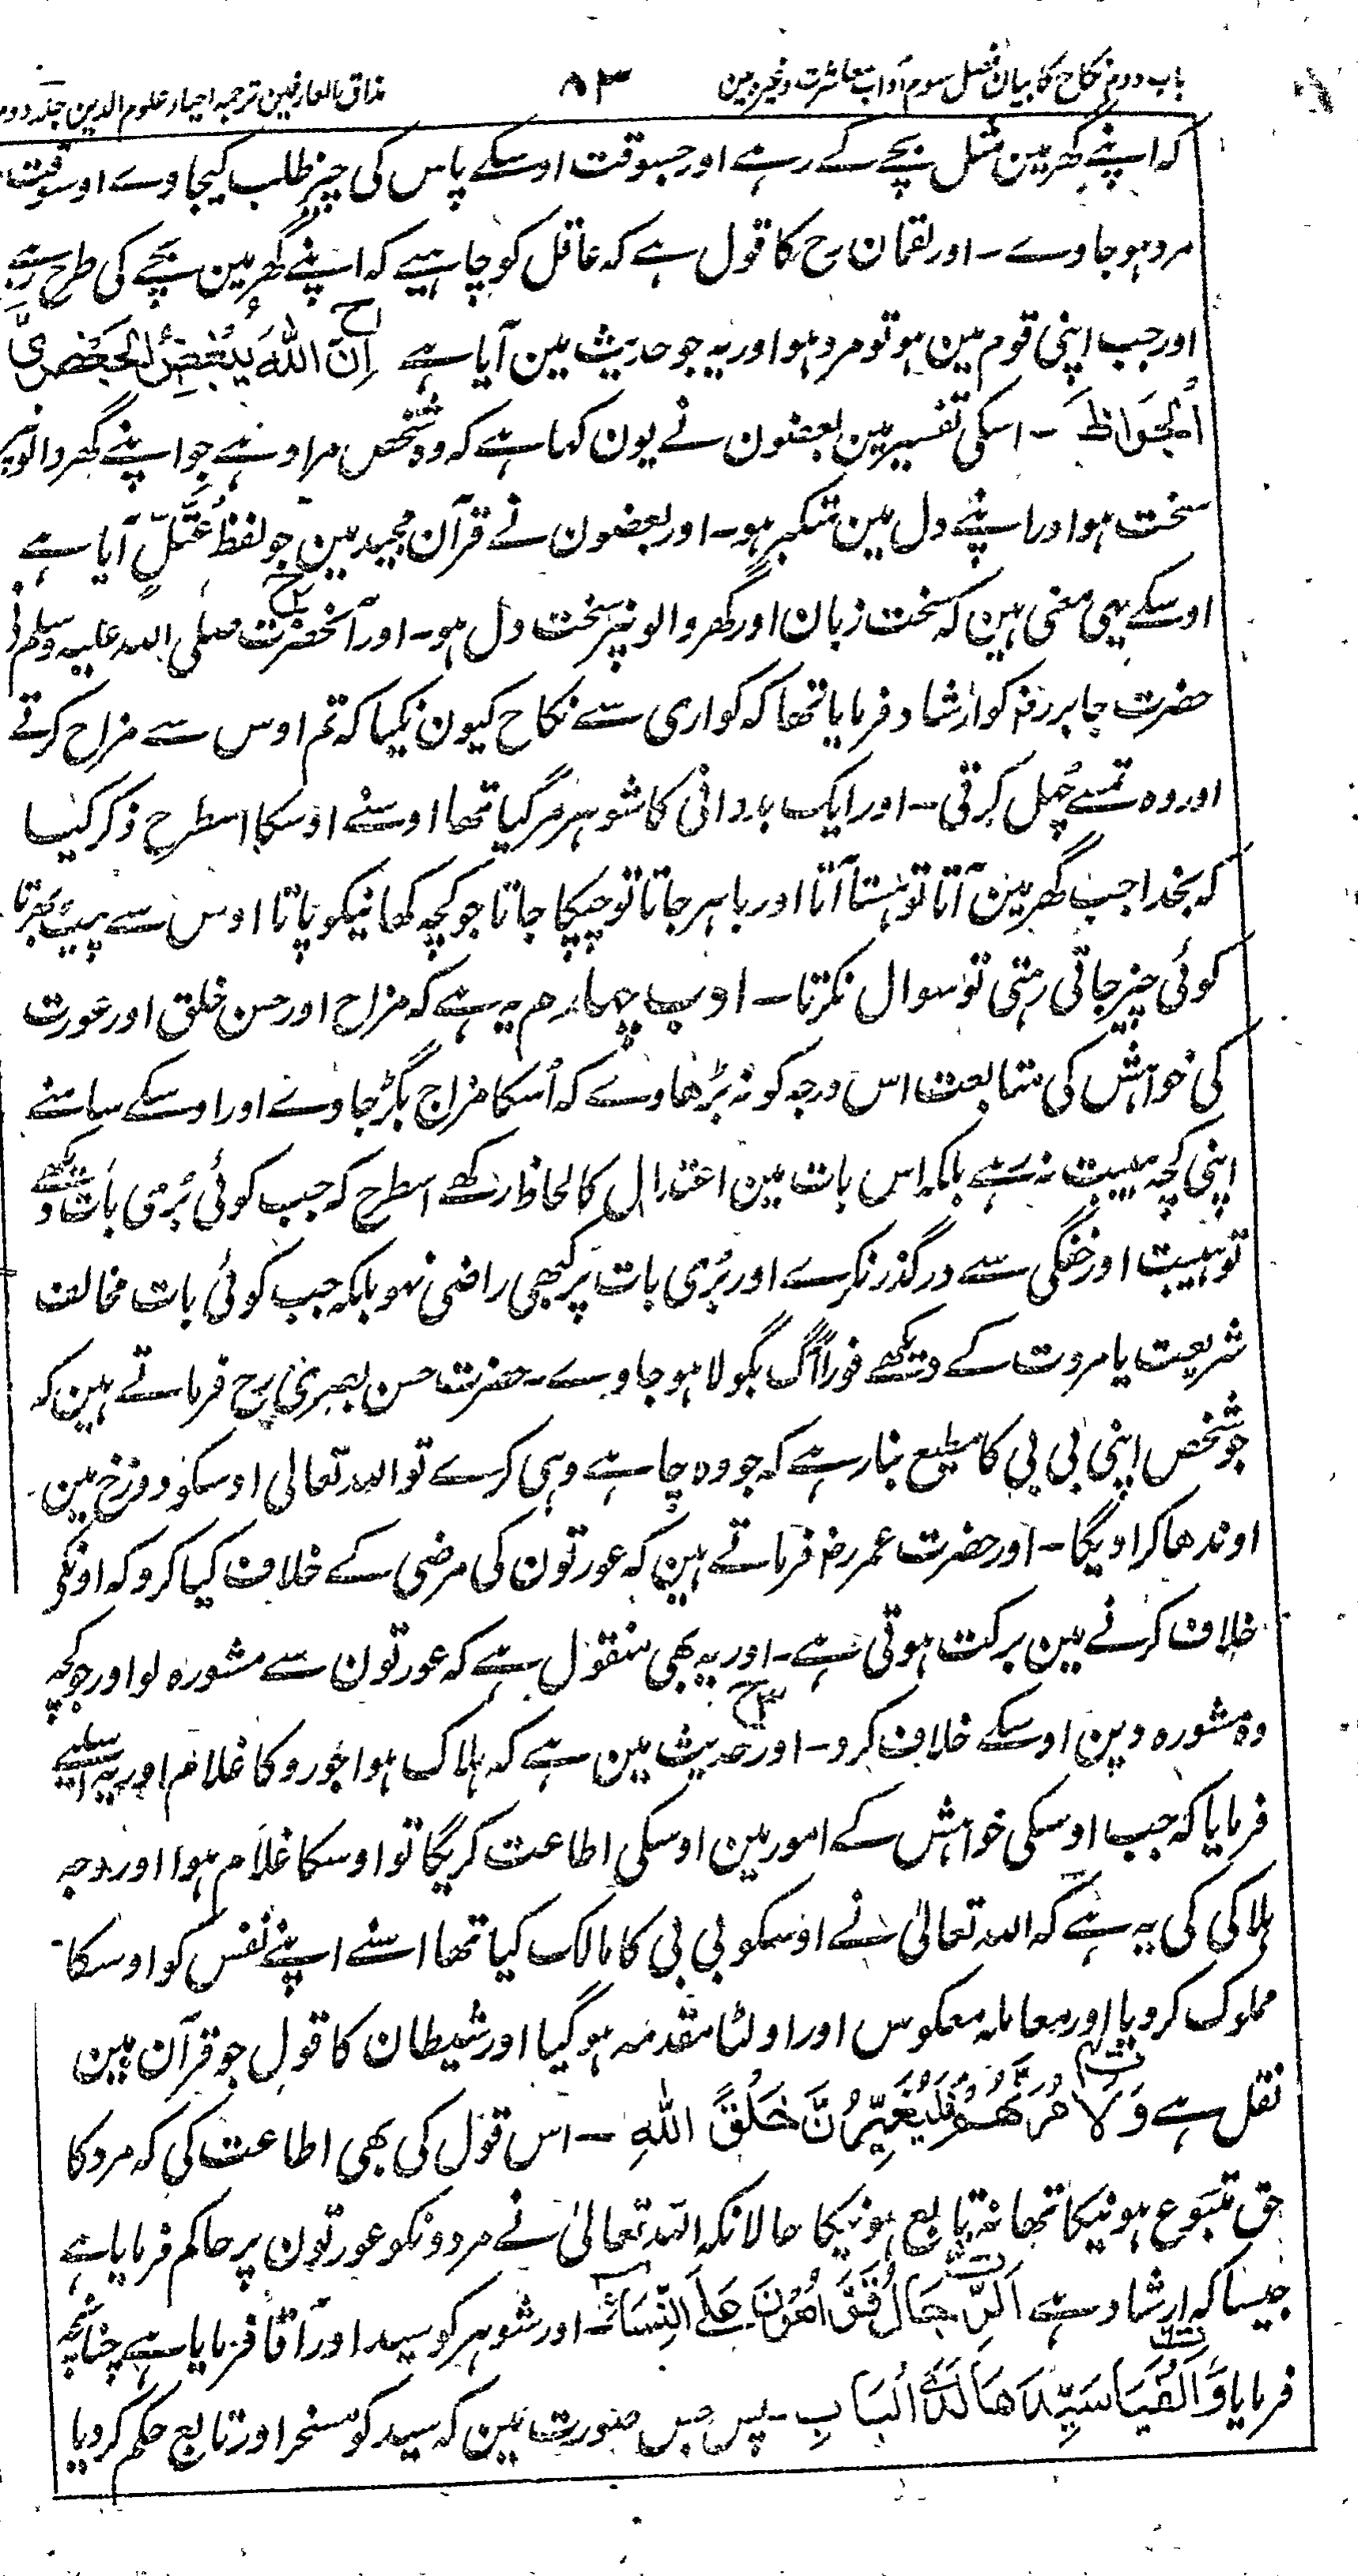 باب دوم نکاح کا بیان فصل سوم آداب معاشرت وغیرہ مین ۸۳ مذاق العارفین ترجمہ احیاء علوم الدین جلد دوم
کہ اپنے گھر مین مثل بچے کے رہے اور جسوقت اوسکے پاس کی چیز طلب کیجاوے اوسوقت
مرد ہو جاوے - اور لقمان رح کا قول ہے کہ عاقل کو چاہیے کہ اپنے گھر مین بچے کی طرح رہے
اور جب اپنی قوم مین ہو تو مرد ہو اور یہ جو حدیث مین آیا ہے اِنَّ اللّٰهَ یُبْغِضُ الْجَعْظَرِیَّ
الْجَوَّاظَ - اسکی تفسیر مین بعضون نے یون کہا ہے کہ وہ شخص مراد ہے جو اپنے گھر والونپر
سخت ہو اور اپنے دل مین متکبر ہو - اور بعضون نے قرآن مجید مین جو لفظ عُتُلٍّ آیا ہے
اوسکے یہی معنی ہین کہ سخت زبان اور گھر والونپر سخت دل ہو - اور آنحضرت صلی اللہ علیہ وسلم نے
حضرت جابر رضہ کو ارشاد فرمایا تھا کہ کواری سے نکاح کیون نکیا کہ تم اوس سے مزاح کرتے
اور وہ تمسے چہل کرتی - اور ایک بادوانی کا شوہر مر گیا تھا اوسنے اوسکا اسطرح ذکر کیا
کہ بخدا جب گھر مین آتا تو ہنستا آتا اور باہر جاتا تو چپکا جاتا جو کچھ کھانیکو پاتا اوس سے پیٹ بھرتا
کوئی چیز جاتی رہتی تو سوال نکرتا - ادب چہارم یہ ہے کہ مزاح اور حسن خلق اور عورت
کی خواہش کی متابعت اس درجہ کو نہ بڑھاوے کہ اُسکا مزاج بگڑ جاوے اور اوسکے سامنے
اپنی کچھ ہیبت نہ رہے بلکہ اس بات مین اعتدال کا لحاظ رکھے اسطرح کہ جب کوئی بُری بات دیکھے
تو ہیبت اور خفگی سے درگذر نکرے اور بُری بات پر کبھی راضی نہو بلکہ جب کوئی بات مخالف
شریعت یا مروت کے دیکھے فوراً آگ بگولا ہو جاوے - حضرت حسن بصری رح فرماتے ہین کہ
جو شخص اپنی بی بی کا مطیع بنا رہے کہ جو وہ چاہے وہی کرے تو اللہ تعالی اوسکو دوزخ مین
اوندھا کراویگا - اور حضرت عمر رضہ فرماتے ہین کہ عورتون کی مرضی کے خلاف کیا کرو کہ اونکی
خلاف کرنے مین برکت ہوتی ہے - اور یہ بھی منقول ہے کہ عورتون سے مشورہ لو اور جو کچھ
وہ مشورہ دین اوسکے خلاف کرو - اور حدیث مین ہے کہ ہلاک ہوا جورو کا غلام اور یہ اسلیے
فرمایا کہ جب اوسکی خواہش کے امور مین اوسکی اطاعت کریگا تو اوسکا غلام ہوا اور وجہ
ہلاکی کی یہ ہے کہ اللہ تعالیٰ نے اوسکو بی بی کا مالک کیا تھا اسنے اپنے نفس کو اوسکا
مملوک کر دیا اور معاملہ معکوس اور اولٹا مقدمہ ہو گیا اور شیطان کا قول جو قرآن مین
نقل ہے وَلَاٰمُرَنَّهُمْ فَلَیُغَیِّرُنَّ خَلْقَ اللّٰهِ - اس قول کی بھی اطاعت کی کہ مرد کا
حق متبوع ہونیکا تھا نہ تابع ہونیکا حالانکہ اللہ تعالیٰ نے مردونکو عورتون پر حاکم فرمایا ہے
جیسا کہ ارشاد ہے اَلرِّجَالُ قَوَّامُوْنَ عَلَی النِّسَآءِ - اور شوہر کو سید اور آقا فرمایا ہے چنانچہ
فرمایا وَّاَلْفَیَا سَیِّدَهَا لَدَی الْبَابِ - پس جس صورت مین کہ سید کو مسخر اور تابع حکم کر دیا